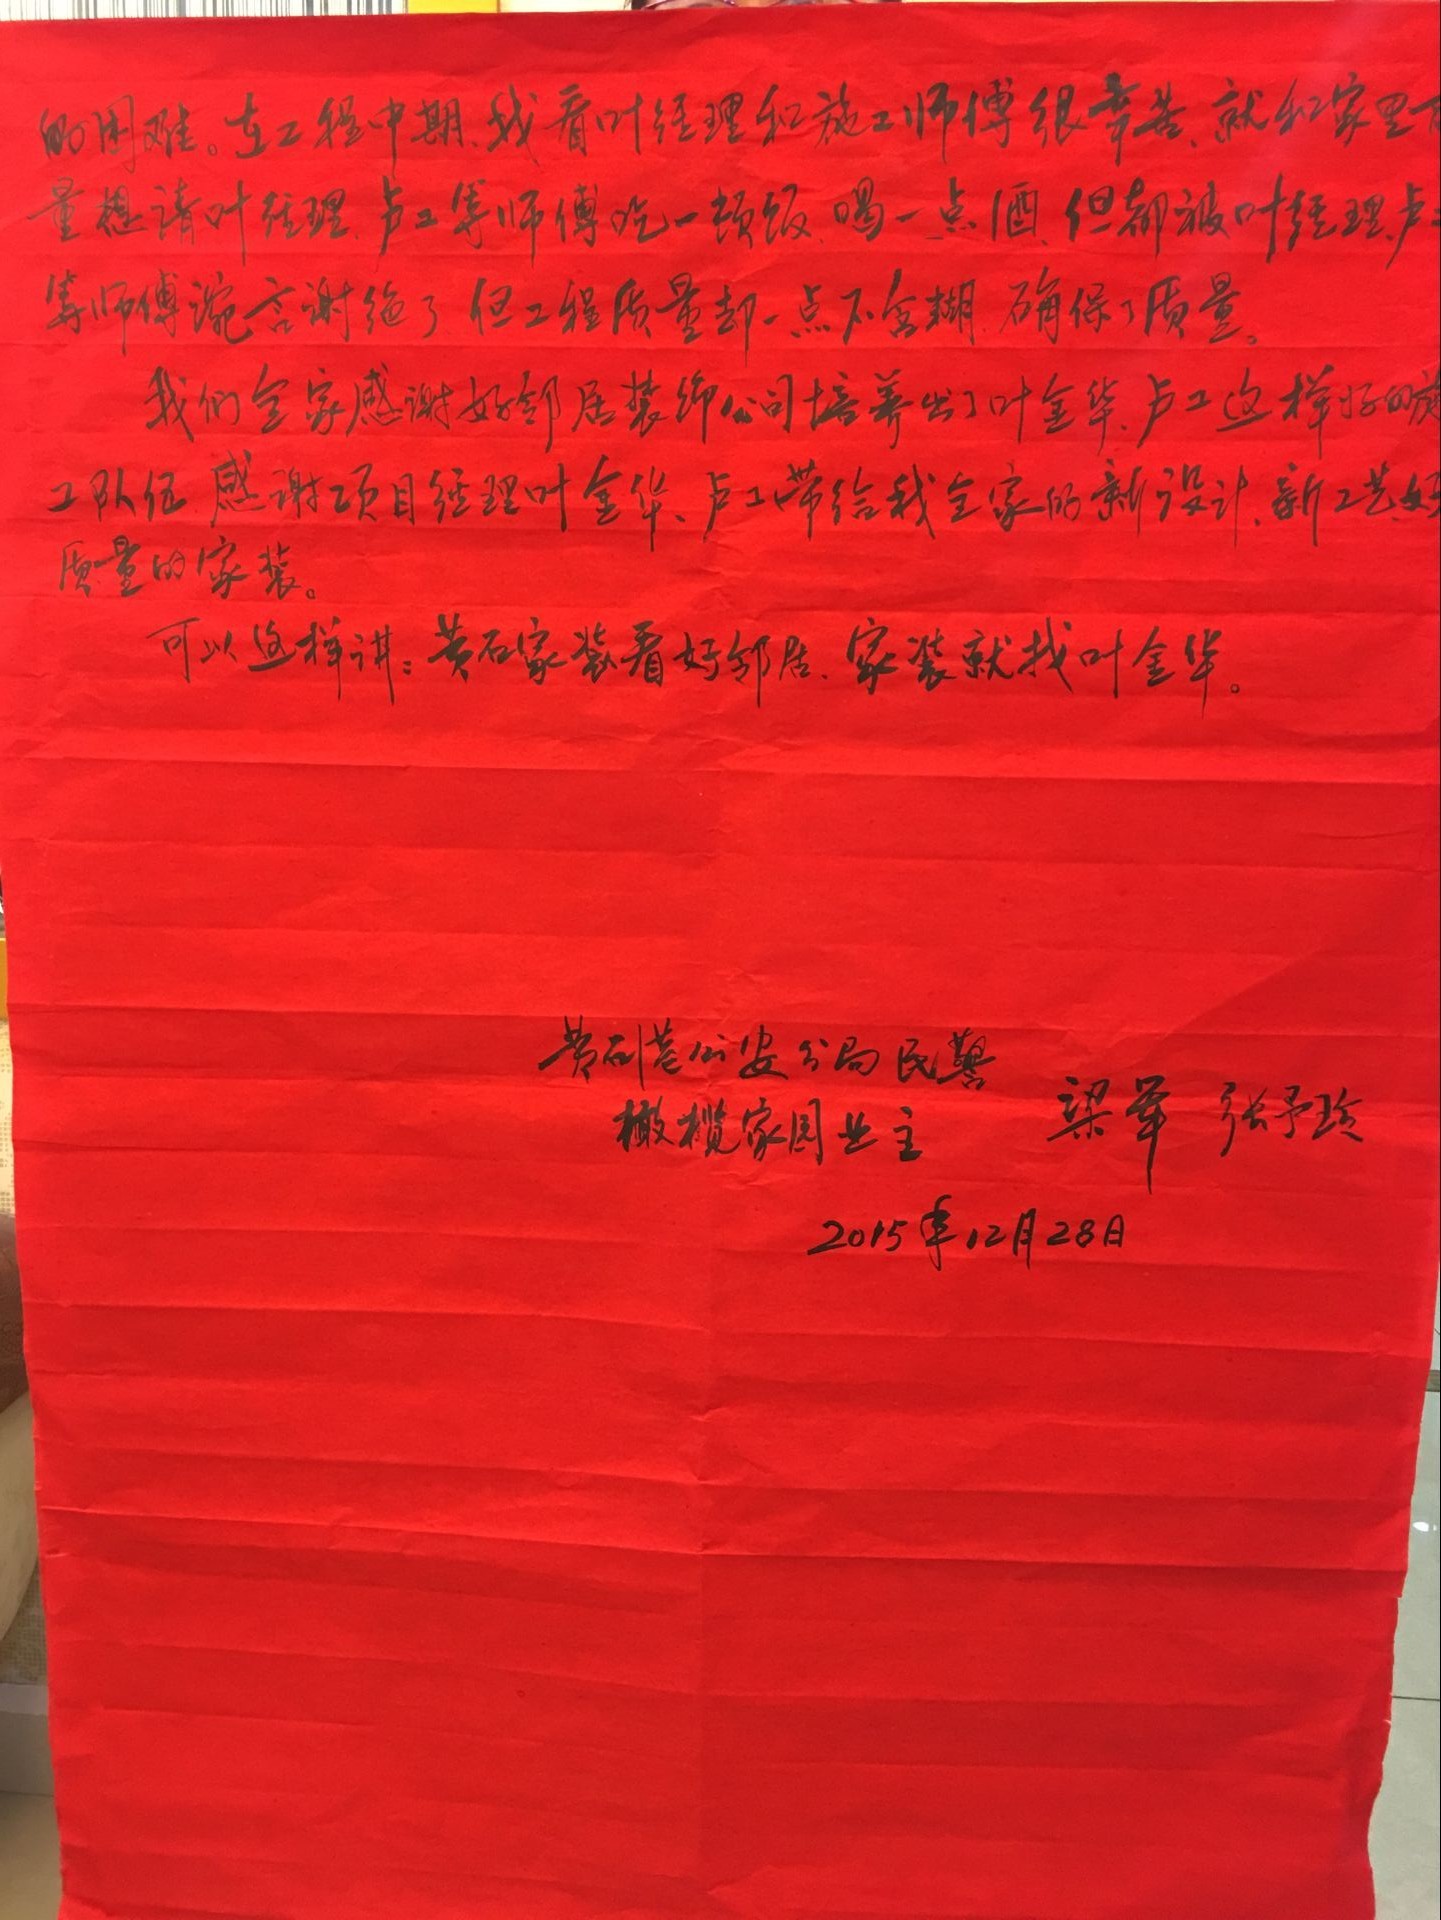 的困难。在工程中期、我看叶经理和施工师傅很辛苦、就和家里商
量想请叶经理、卢工等师傅吃一顿饭、喝一点酒、但都被叶经理、卢工
等师傅婉言谢绝了、但工程质量却一点不含糊、确保了质量。
我们全家感谢好邻居装饰公司培养出了叶金华、卢工这样好的施
工队伍、感谢项目经理叶金华、卢工带给我全家的新设计、新工艺、好
质量的家装。
可以这样讲：黄石家装看好邻居、家装就找叶金华。
黄石港公安分局民警
橄榄家园业主 梁军 张予玲
2015年12月28日